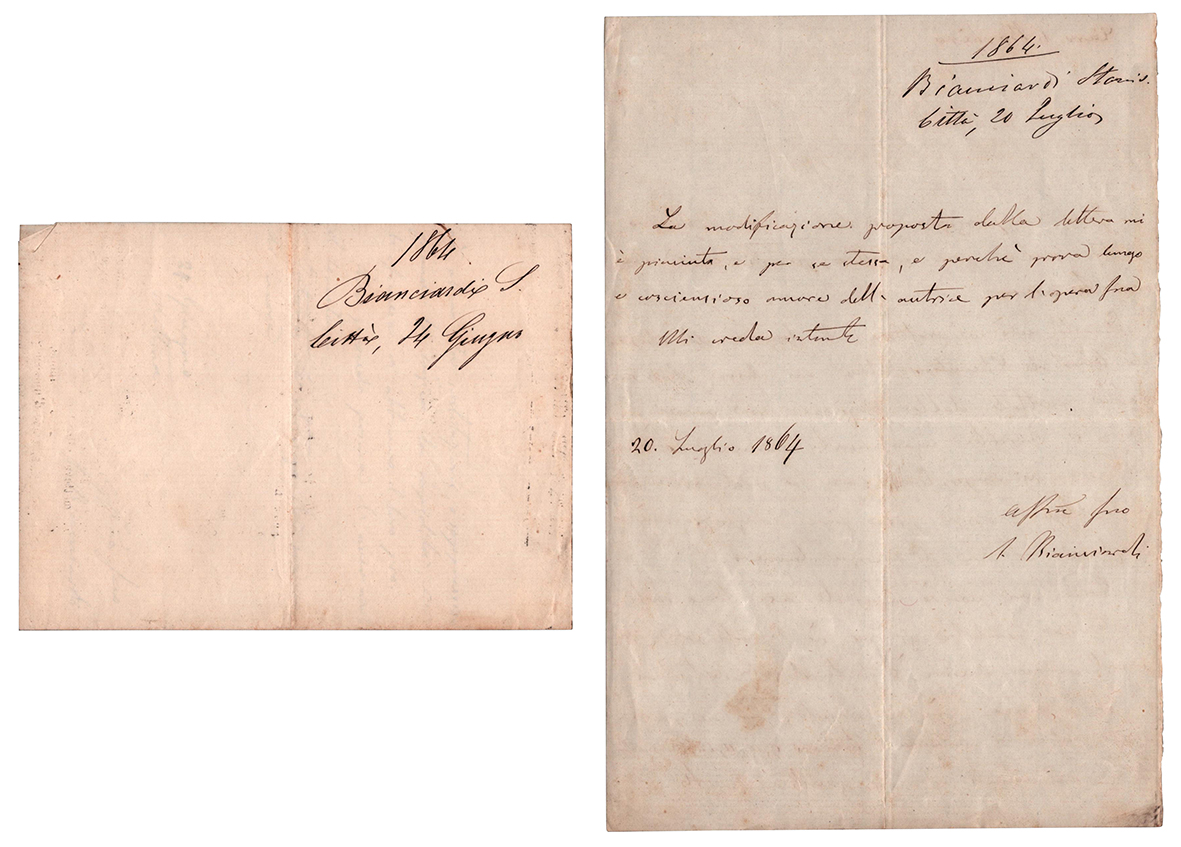 1864.
Bianciardi S.
Città, 24 Giugno
1864.
Bianciardi Stanis.
Città, 20 Luglio
La modificazione proposta dalla lettera mi
è piaciuta, e per se stessa, e perchè prova lungo
e coscienzioso amore dell'autrice per l'opera sua
Mi creda intanto
20. Luglio 1864
suo
S. Bianciardi